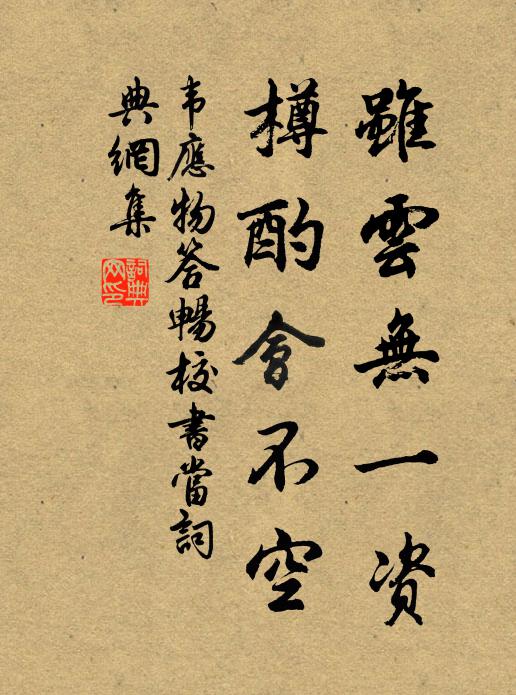 雖雲無一资
樽酌會不空
韦應物答暢校書當詞
典網集
詞典网印